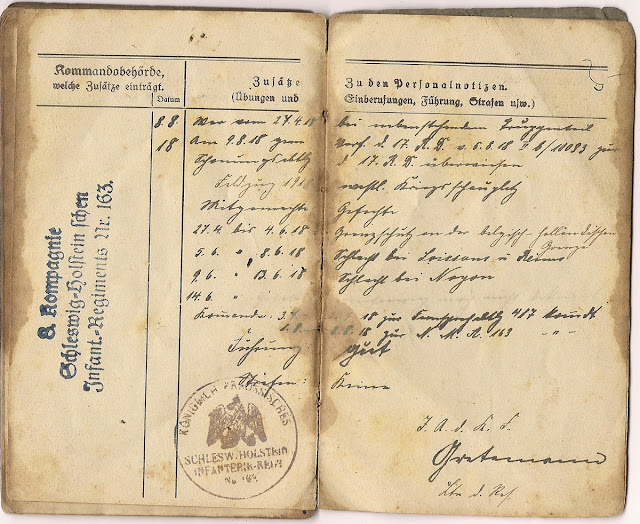 Kommandobehörde,
welche Zusätze einträgt.
Datum
8. Kompagnie
Schleswig-Holstein'schen
Infant.-Regiments Nr. 163.
Zusätze
(Übungen und
Zu den Personalnotizen.
Einberufungen, Führung, Strafen usw.)
8.8. War vom 27.4.18 bei nebenstehendem Truppenteil
18 Am 9.8.18 zum Verf. d. 17. R.D. v. 5.8.18 zur
d 17. R.D. überwiesen
Feldzug 1918 westl. Kriegsschauplatz
Mitgemachte Gefechte
27.4. bis 4.6.18 Grenzschutz an der belgisch-holländischen Grenze
5.6. " 8.6.18 Schlacht bei Soissons u Reims
9.6. " 13.6.18 Schlacht bei Noyon
14.6. "
18 zur 487
18 zur R. 163 " "
Führung gut
Strafen: Keine
KÖNIGLICH PREUSSISCHES
SCHLESW. HOLSTEIN
INFANTERIE-REGT
No 163
J. A. d. K. F.
Gretemann
Ltn d. Res.